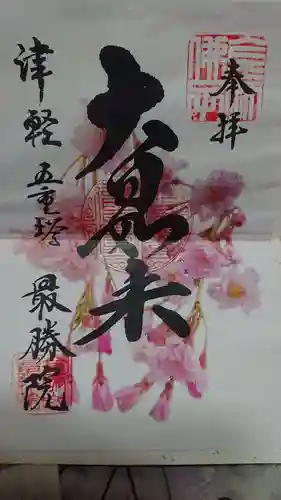 奉拝
大日如来
津軽五重塔
最勝院